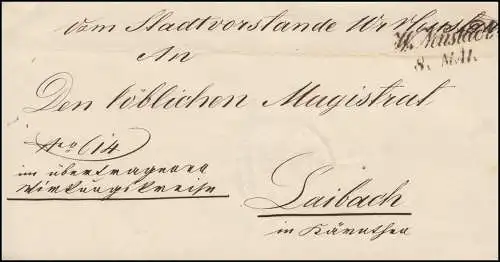 vom Stadtvorstande Wr Neustadt
W. Neustadt
8. MAI.
An
Den löblichen Magistrat
Nro 614
im übertragenen
Wirkungskreise
Laibach
in Kärnthen